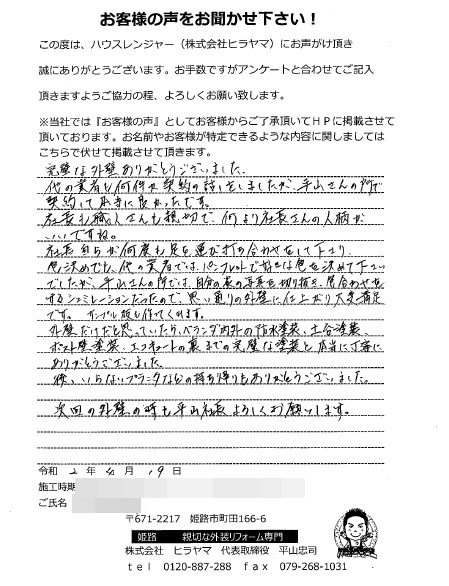 お客様の声をお聞かせ下さい！
この度は、ハウスレンジャー（株式会社ヒラヤマ）にお声がけ頂き
誠にありがとうございます。お手数ですがアンケートと合わせてご記入
頂きますようご協力の程、よろしくお願い致します。
※当社では『お客様の声』としてお客様からご了承頂いてＨＰに掲載させて
頂いております。お名前やお客様が特定できるような内容に関しましては
こちらで伏せて掲載させて頂きます。
完璧な外壁ありがとうございました。
他の業者と何件か契約の話しをしましたが、平山さんの所で
契約して本当に良かったです。
社長も職人さんも親切で、何より社長さんの人柄が
いいですね。
社長自らが何度も足を運び打ち合わせをして下さり、
色決めでも、他の業者では、パンフレットで好きな色を決めて下さい
でしたが、平山さんの所では、自分の家の写真を切り抜き、色合わせを
するシュミレーションだったので、思い通りの外壁に仕上がり大変満足
です。サンプル板も作ってくれます。
外壁だけだと思っていたら、ベランダ内外の防水塗装、土台塗装、
ポスト壁塗装、エコキュートの裏までの完璧な塗装と本当に丁寧に
ありがとうございました。
後、いらないプランタなどの持ち帰りもありがとうございました。
次回の外壁の時も平山社長よろしくお願いします。
令和 2 年 4 月 19 日
施工時期
ご氏名
〒671-2217 姫路市町田166-6
姫路 親切な外装リフォーム専門
株式会社 ヒラヤマ 代表取締役 平山忠司
ｔｅｌ 0120-887-288 ｆａｘ 079-268-1031